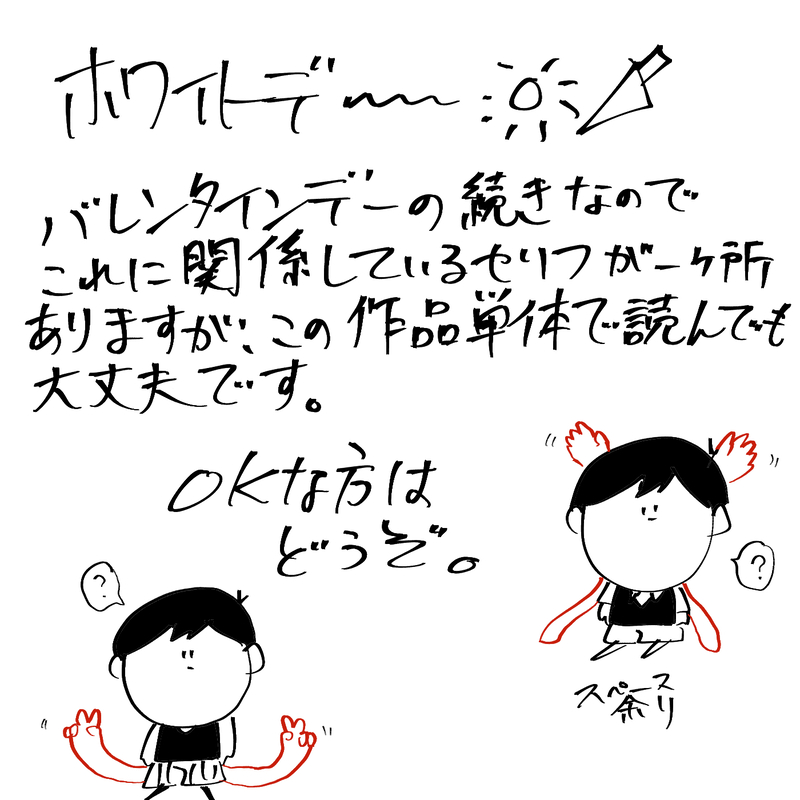 ホワイトデー
バレンタインデーの続きなので
これに関係しているセリフが一ヶ所
ありますが、この作品単体で読んでも
大丈夫です。
OKな方は
どうぞ。
?
?
スペース
余り